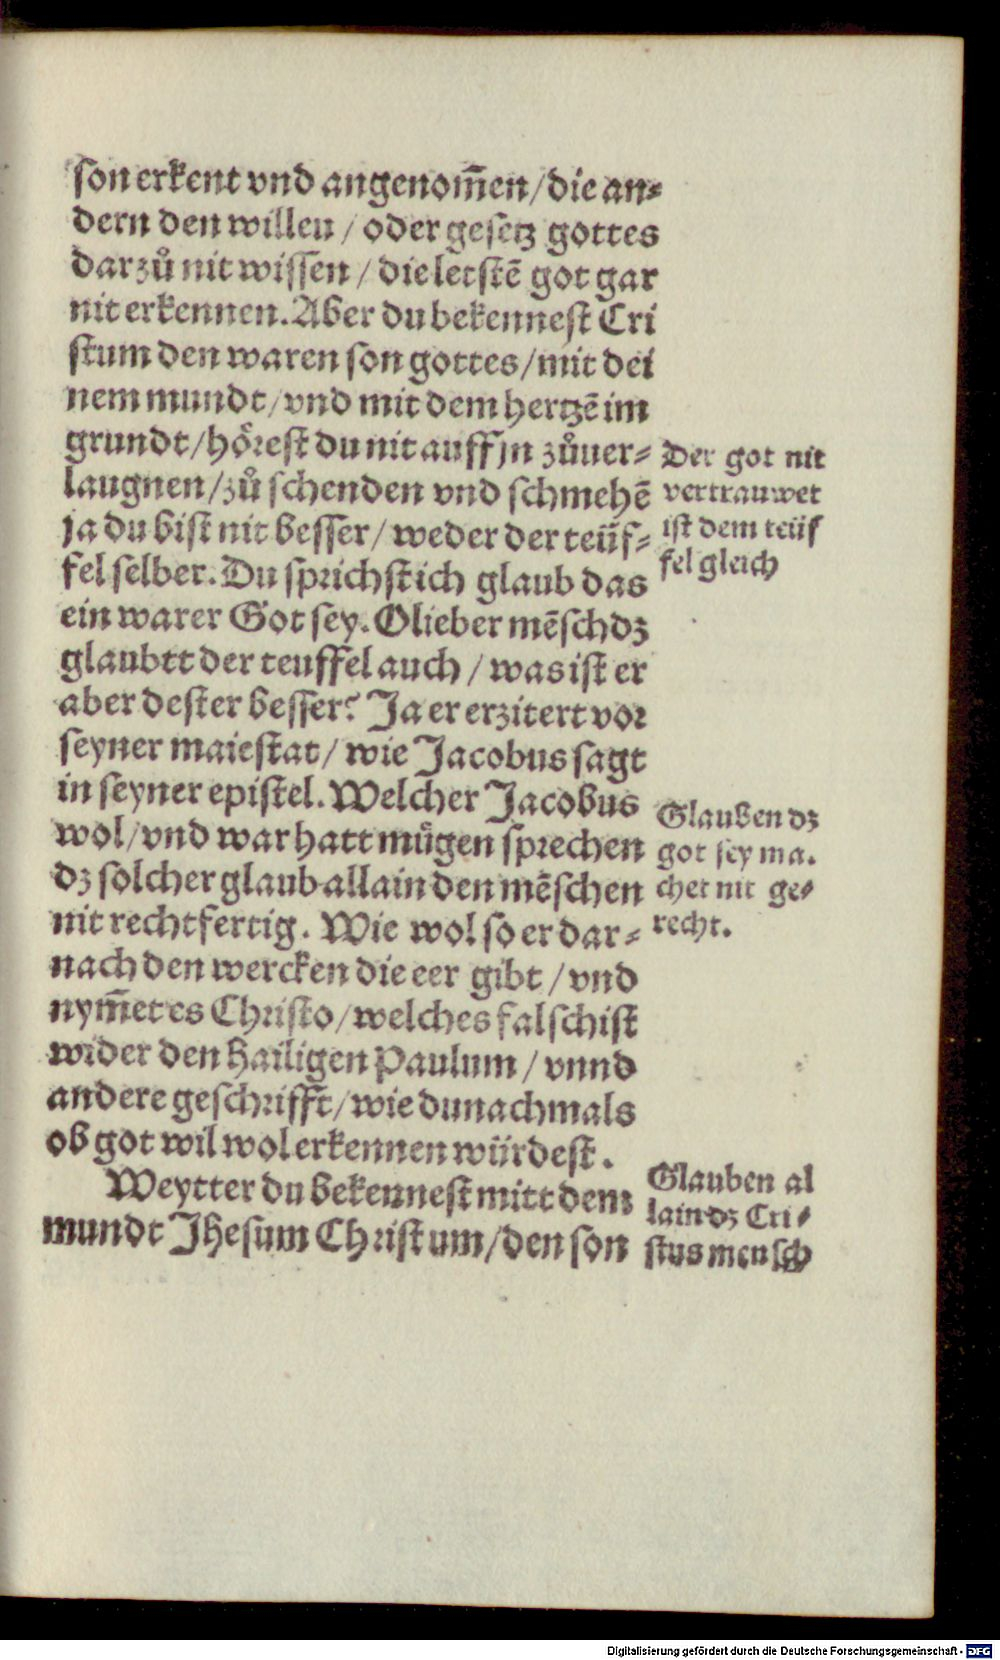 son erkent vnd angenom̃en/die an⸗
dern den willen / oder gesetz gottes
darzů nit wissen / die letstẽ got gar
nit erkennen. Aber du bekennest Cri
stum den waren son gottes/mit dei
nem mundt/vnd mit dem hertzẽ im
grundt/hörest du nit auff jn zůuer⸗
laugnen/zů schenden vnd schmehẽ
ja du bist nit besser/ weder der teüf⸗
fel selber. Du sprichst ich glaub das
ein warer Got sey. O lieber mẽsch dz
glaubtt der teuffel auch / was ist er
aber dester besser? Ja er erzitert vor
seyner maiestat/ wie Jacobus sagt
in seyner epistel. Welcher Jacobus
wol/vnd war hatt mügen sprechen
dz solcher glaub allain den mẽschen
nit rechtfertig. Wie wol so er dar⸗
nach den wercken die eer gibt / vnd
nym̃et es Christo/welches falsch ist
wider den hailigen Paulum / vnnd
andere geschrifft/wie du nachmals
ob got wil wol erkennen würdest.
Weytter du bekennest mitt dem
mundt Jhesum Christum/den son
Der got nit
vertrauwet
ist dem teüf
fel gleich
Glauben dz
got sey ma.
chet nit ge⸗
recht.
Glauben al
lain dz Cri⸗
stus mensch
Digitalisierung gefördert durch die Deutsche Forschungsgemeinschaft - DFG